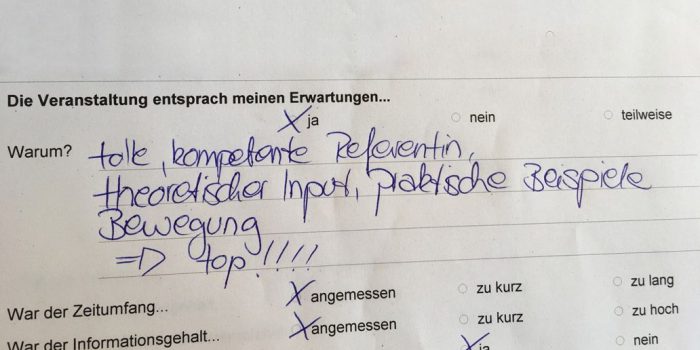 Die Veranstaltung entsprach meinen Erwartungen...
X ja nein teilweise
Warum? tolle, kompetente Referentin,
theoretischer Input, praktische Beispiele
Bewegung
=> top!!!!!
War der Zeitumfang... X angemessen zu kurz zu lang
War der Informationsgehalt... X angemessen zu kurz zu hoch
X ja nein